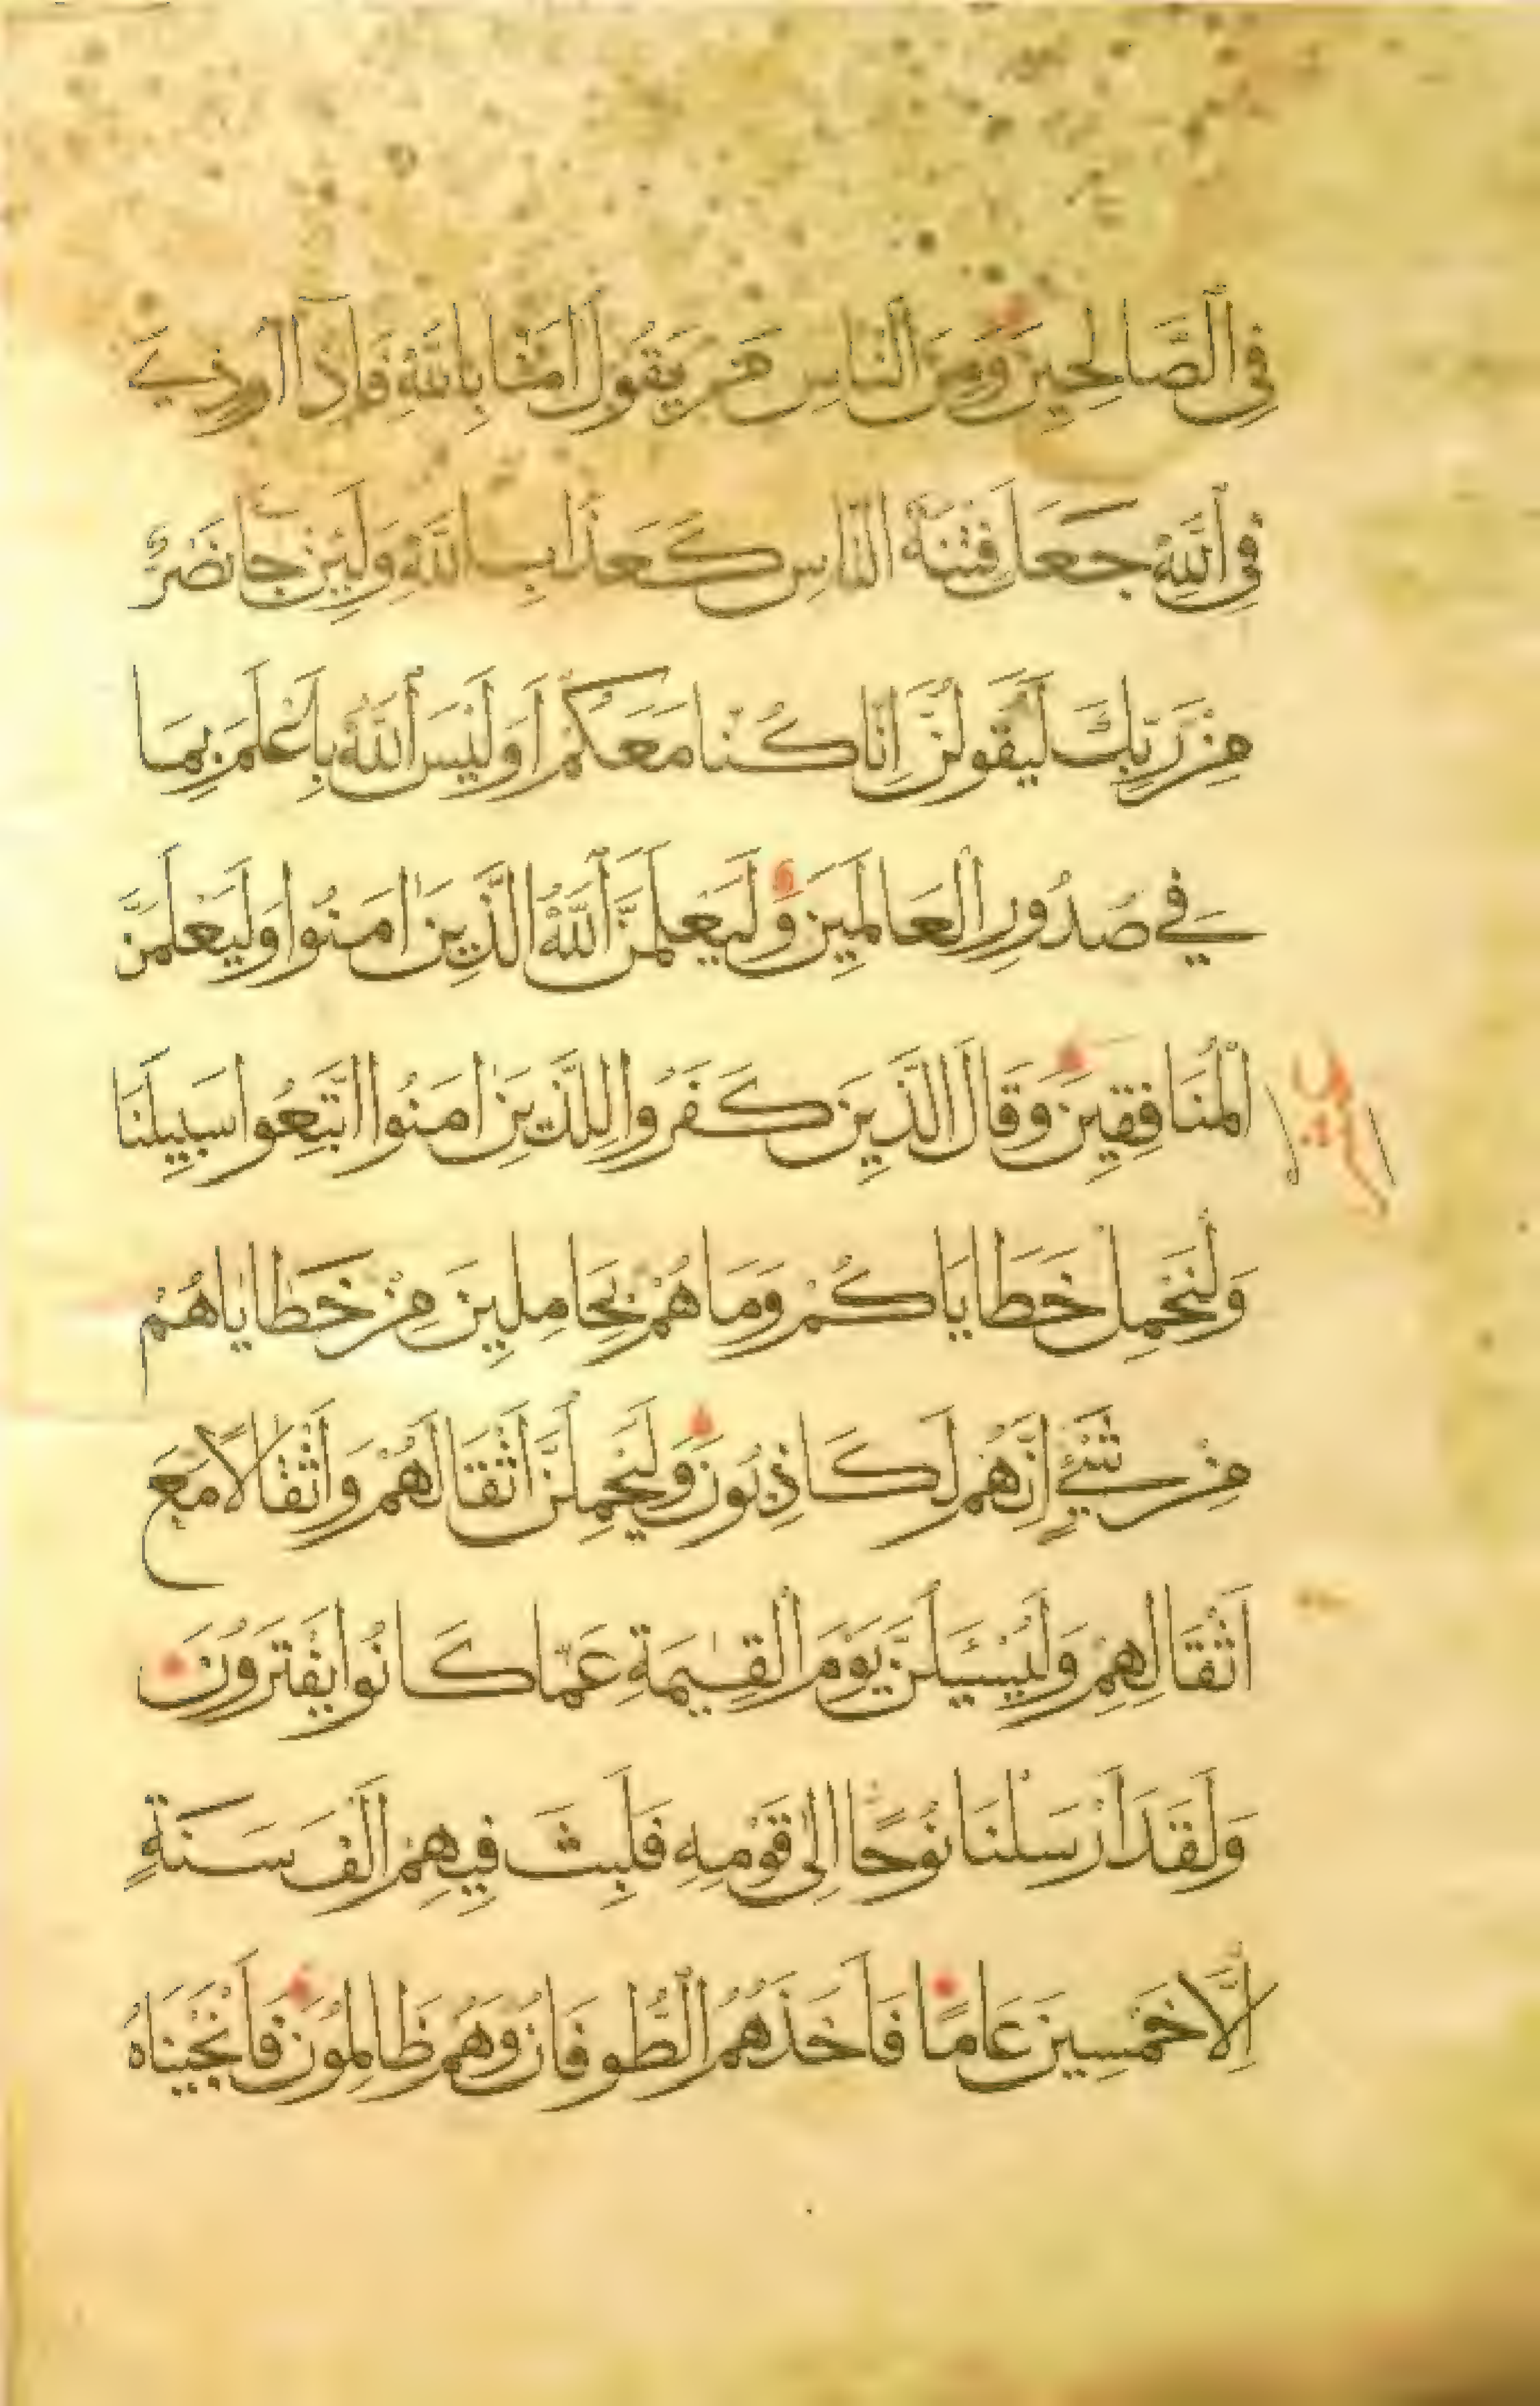 فِي الصَّالِحِينَ وَمِنَ النَّاسِ مَن يَقُولُ اٰمَنَّا بِاللَّهِ فَإِذَا اُوذِيَ
فِي اللَّهِ جَعَلَ فِتْنَةَ النَّاسِ كَعَذَابِ اللَّهِ وَلَئِنْ جَا نَصْرٌ
مِنْ رَبِّكَ لَيَقُولُنَّ اِنَّا كُنَّا مَعَكُمْ اَوَلَيْسَ اللَّهُ بِاَعْلَمَ بِمَا
فِي صُدُورِ الْعَالَمِينَ وَلَيَعْلَمَنَّ اللَّهُ الَّذِينَ اٰمَنُوا وَلَيَعْلَمَنَّ
الْمُنَافِقِينَ وَقَالَ الَّذِينَ كَفَرُوا لِلَّذِينَ اٰمَنُوا اتَّبِعُوا سَبِيلَنَا
وَلْنَحْمِلْ خَطَايَاكُمْ وَمَا هُمْ بِحَامِلِينَ مِنْ خَطَايَاهُمْ
مِنْ شَيْءٍ اِنَّهُمْ لَكَاذِبُونَ وَلَيَحْمِلُنَّ اَثْقَالَهُمْ وَاَثْقَالًا مَعَ
اَثْقَالِهِمْ وَلَيُسْـَٔلُنَّ يَوْمَ الْقِيٰمَةِ عَمَّا كَانُوا يَفْتَرُونَ
وَلَقَدْ اَرْسَلْنَا نُوحًا اِلٰى قَوْمِهِ فَلَبِثَ فِيهِمْ اَلْفَ سَنَةٍ
اِلَّا خَمْسِينَ عَامًا فَاَخَذَهُمُ الطُّوفَانُ وَهُمْ ظَالِمُونَ فَاَنْجَيْنَاهُ